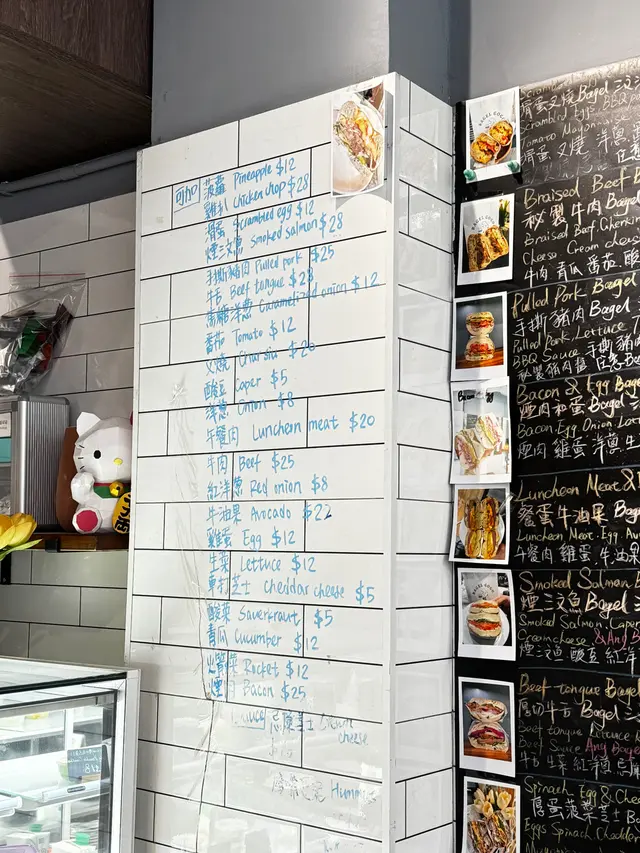 可加
菠蘿 Pineapple $12
雞扒 Chicken chop $28
滑蛋 Scrambled egg $12
煙三文魚 Smoked salmon $28
手撕豬肉 Pulled pork $25
牛舌 Beef tongue $28
焦糖洋蔥 Caramelized onion $12
番茄 Tomato $12
叉燒 Char siu $20
酸豆 Caper $5
洋蔥 Onion $8
午餐肉 Luncheon meat $20
牛肉 Beef $25
紅洋蔥 Red onion $8
牛油果 Avocado $22
雞蛋 Egg $12
生菜 Lettuce $12
車打芝士 Cheddar cheese $5
酸菜 Sauerkraut $5
青瓜 Cucumber $12
火箭菜 Rocket $12
煙肉 Bacon $25
忌廉芝士 Cream
cheese
滑蛋叉燒 Bagel
Scrambled Egg BBQ
滑蛋 叉燒 洋蔥
Braised Beef B
秘製牛肉 Bagel
Braised Beef Gherk
Cheese Cream
牛肉 青瓜 番茄 酸
Pulled Pork Bagel
手撕豬肉 Bagel
Pulled Pork Lettuce
BBQ Sauce 手撕豬肉
Bacon & Egg Bage
煙肉和蛋 Bagel
Bacon Egg Onion Lett
煙肉 雞蛋 洋蔥 生
Luncheon Meat &
餐蛋牛油果 Bag
Luncheon Meat Egg Av
午餐肉 雞蛋 牛油果
Smoked Salmon
煙三文魚 Bagel
Smoked Salmon Caper
Cream cheese & Any
煙三文魚 酸豆 紅洋
Beef tongue Bagel
厚切牛舌 Bagel
Beef tongue Lettuce
Beef Sauce Any Bage
牛舌 生菜 紅洋蔥
Spinach Egg & Chee
厚蛋菠菜芝士 B
Eggs Spinach Cheddar